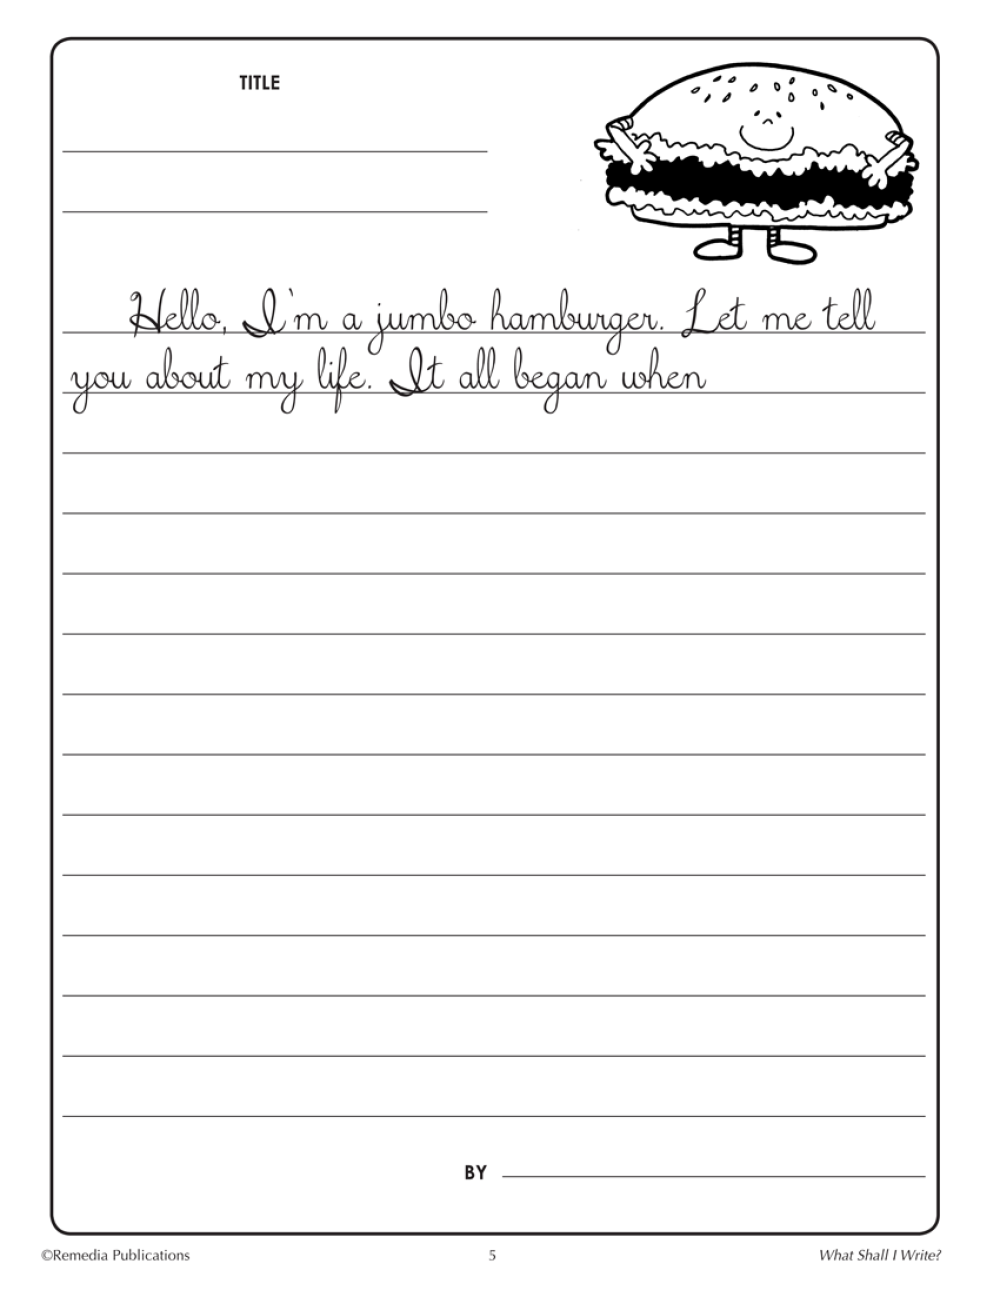 TITLE
Hello, I'm a jumbo hamburger. Let me tell
you about my life. It all began when
BY
©Remedia Publications
5
What Shall I Write?